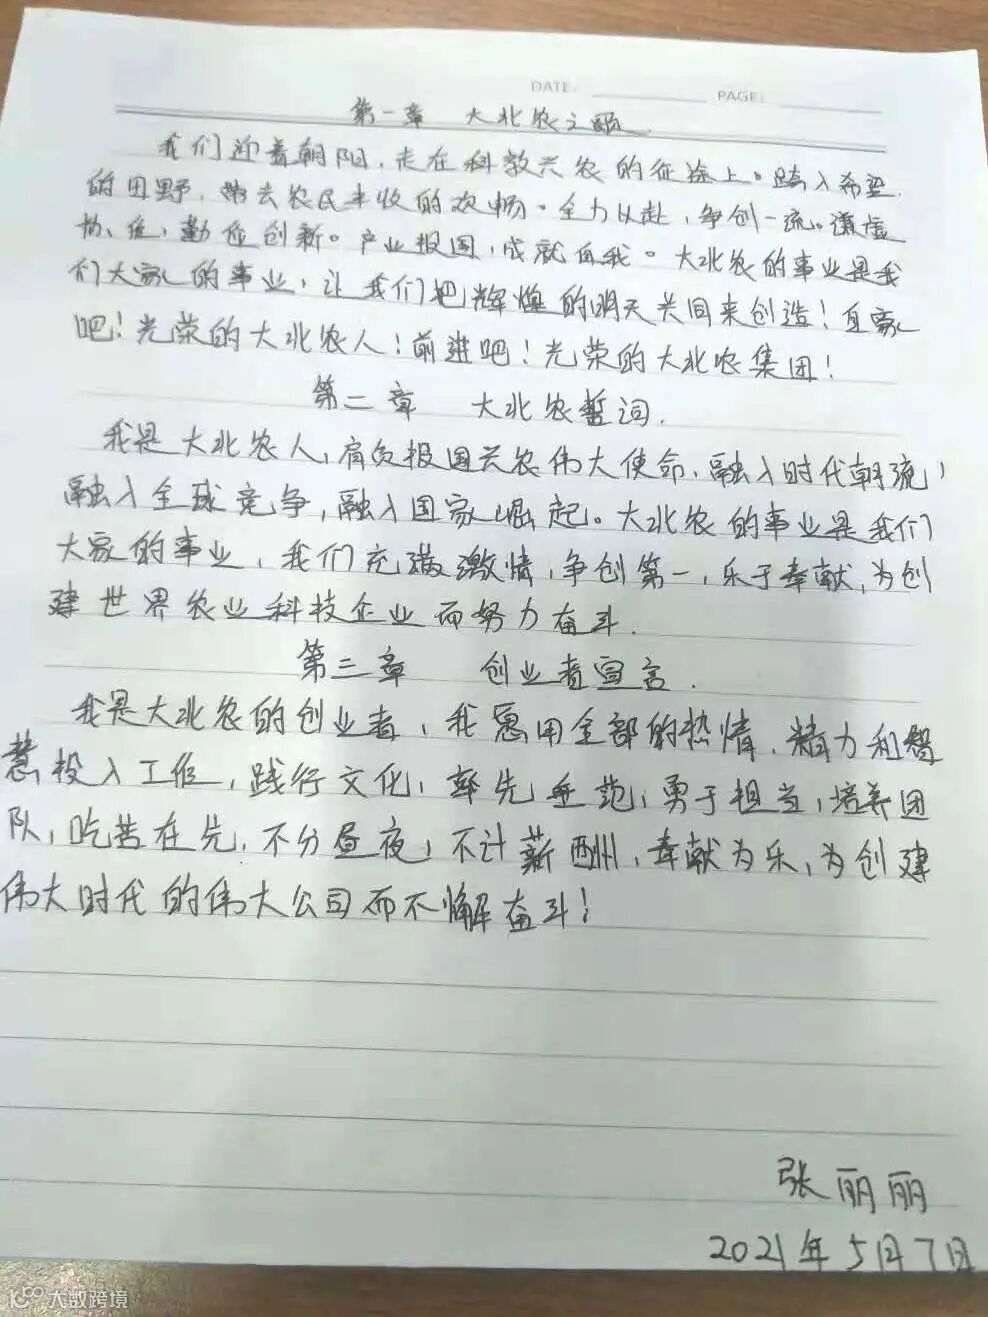 DATE:
PAGE:
第一章 大北农之歌.
我们迎着朝阳,走在科教兴农的征途上。踏入希望
的田野,带去农民丰收的欢畅。全力以赴,争创一流。谦虚
勤 创新。产业报国,成就自我。大北农的事业是我
们大家的事业,让我们把辉煌的明天共同来创造!自豪
吧!光荣的大北农人!前进吧!光荣的大北农集团!
第二章 大北农誓词.
我是大北农人,肩负报国兴农伟大使命,融入时代朝流,
融入全球竞争,融入国家崛起。大北农的事业是我们
大家的事业,我们充满激情,争创第一,乐于奉献,为创
建世界农业科技企业而努力奋斗.
第三章 创业者宣言.
我是大北农的创业者,我愿用全部的热情,精力和智
慧投入工作,践行文化,率先垂范,勇于担当,培养团
队,吃苦在先,不分昼夜,不计薪酬,奉献为乐,为创建
伟大时代的伟大公司而不懈奋斗!
张丽丽
2021年5月7日
大数跨境